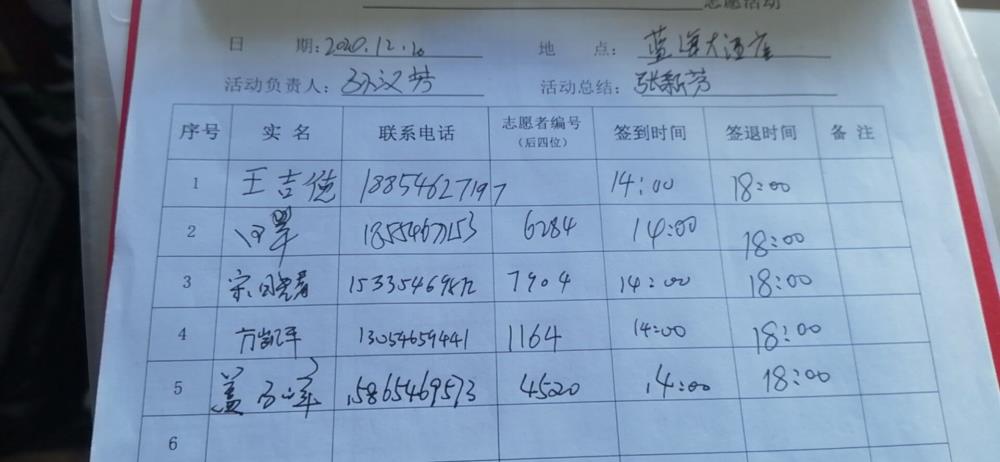 志愿活动
日 期: 2020.12.20 地 点: 蓝海大酒店
活动负责人: 活动总结: 张新芳
序号 实名 联系电话 志愿者编号 (后四位) 签到时间 签退时间 备注
1 王吉德 18854627197 14:00 18:00
2 6284 14:00 18:00
3 7904 14:00 18:00
4 13054659441 1164 14:00 18:00
5 盖 15865469573 4520 14:00 18:00
6